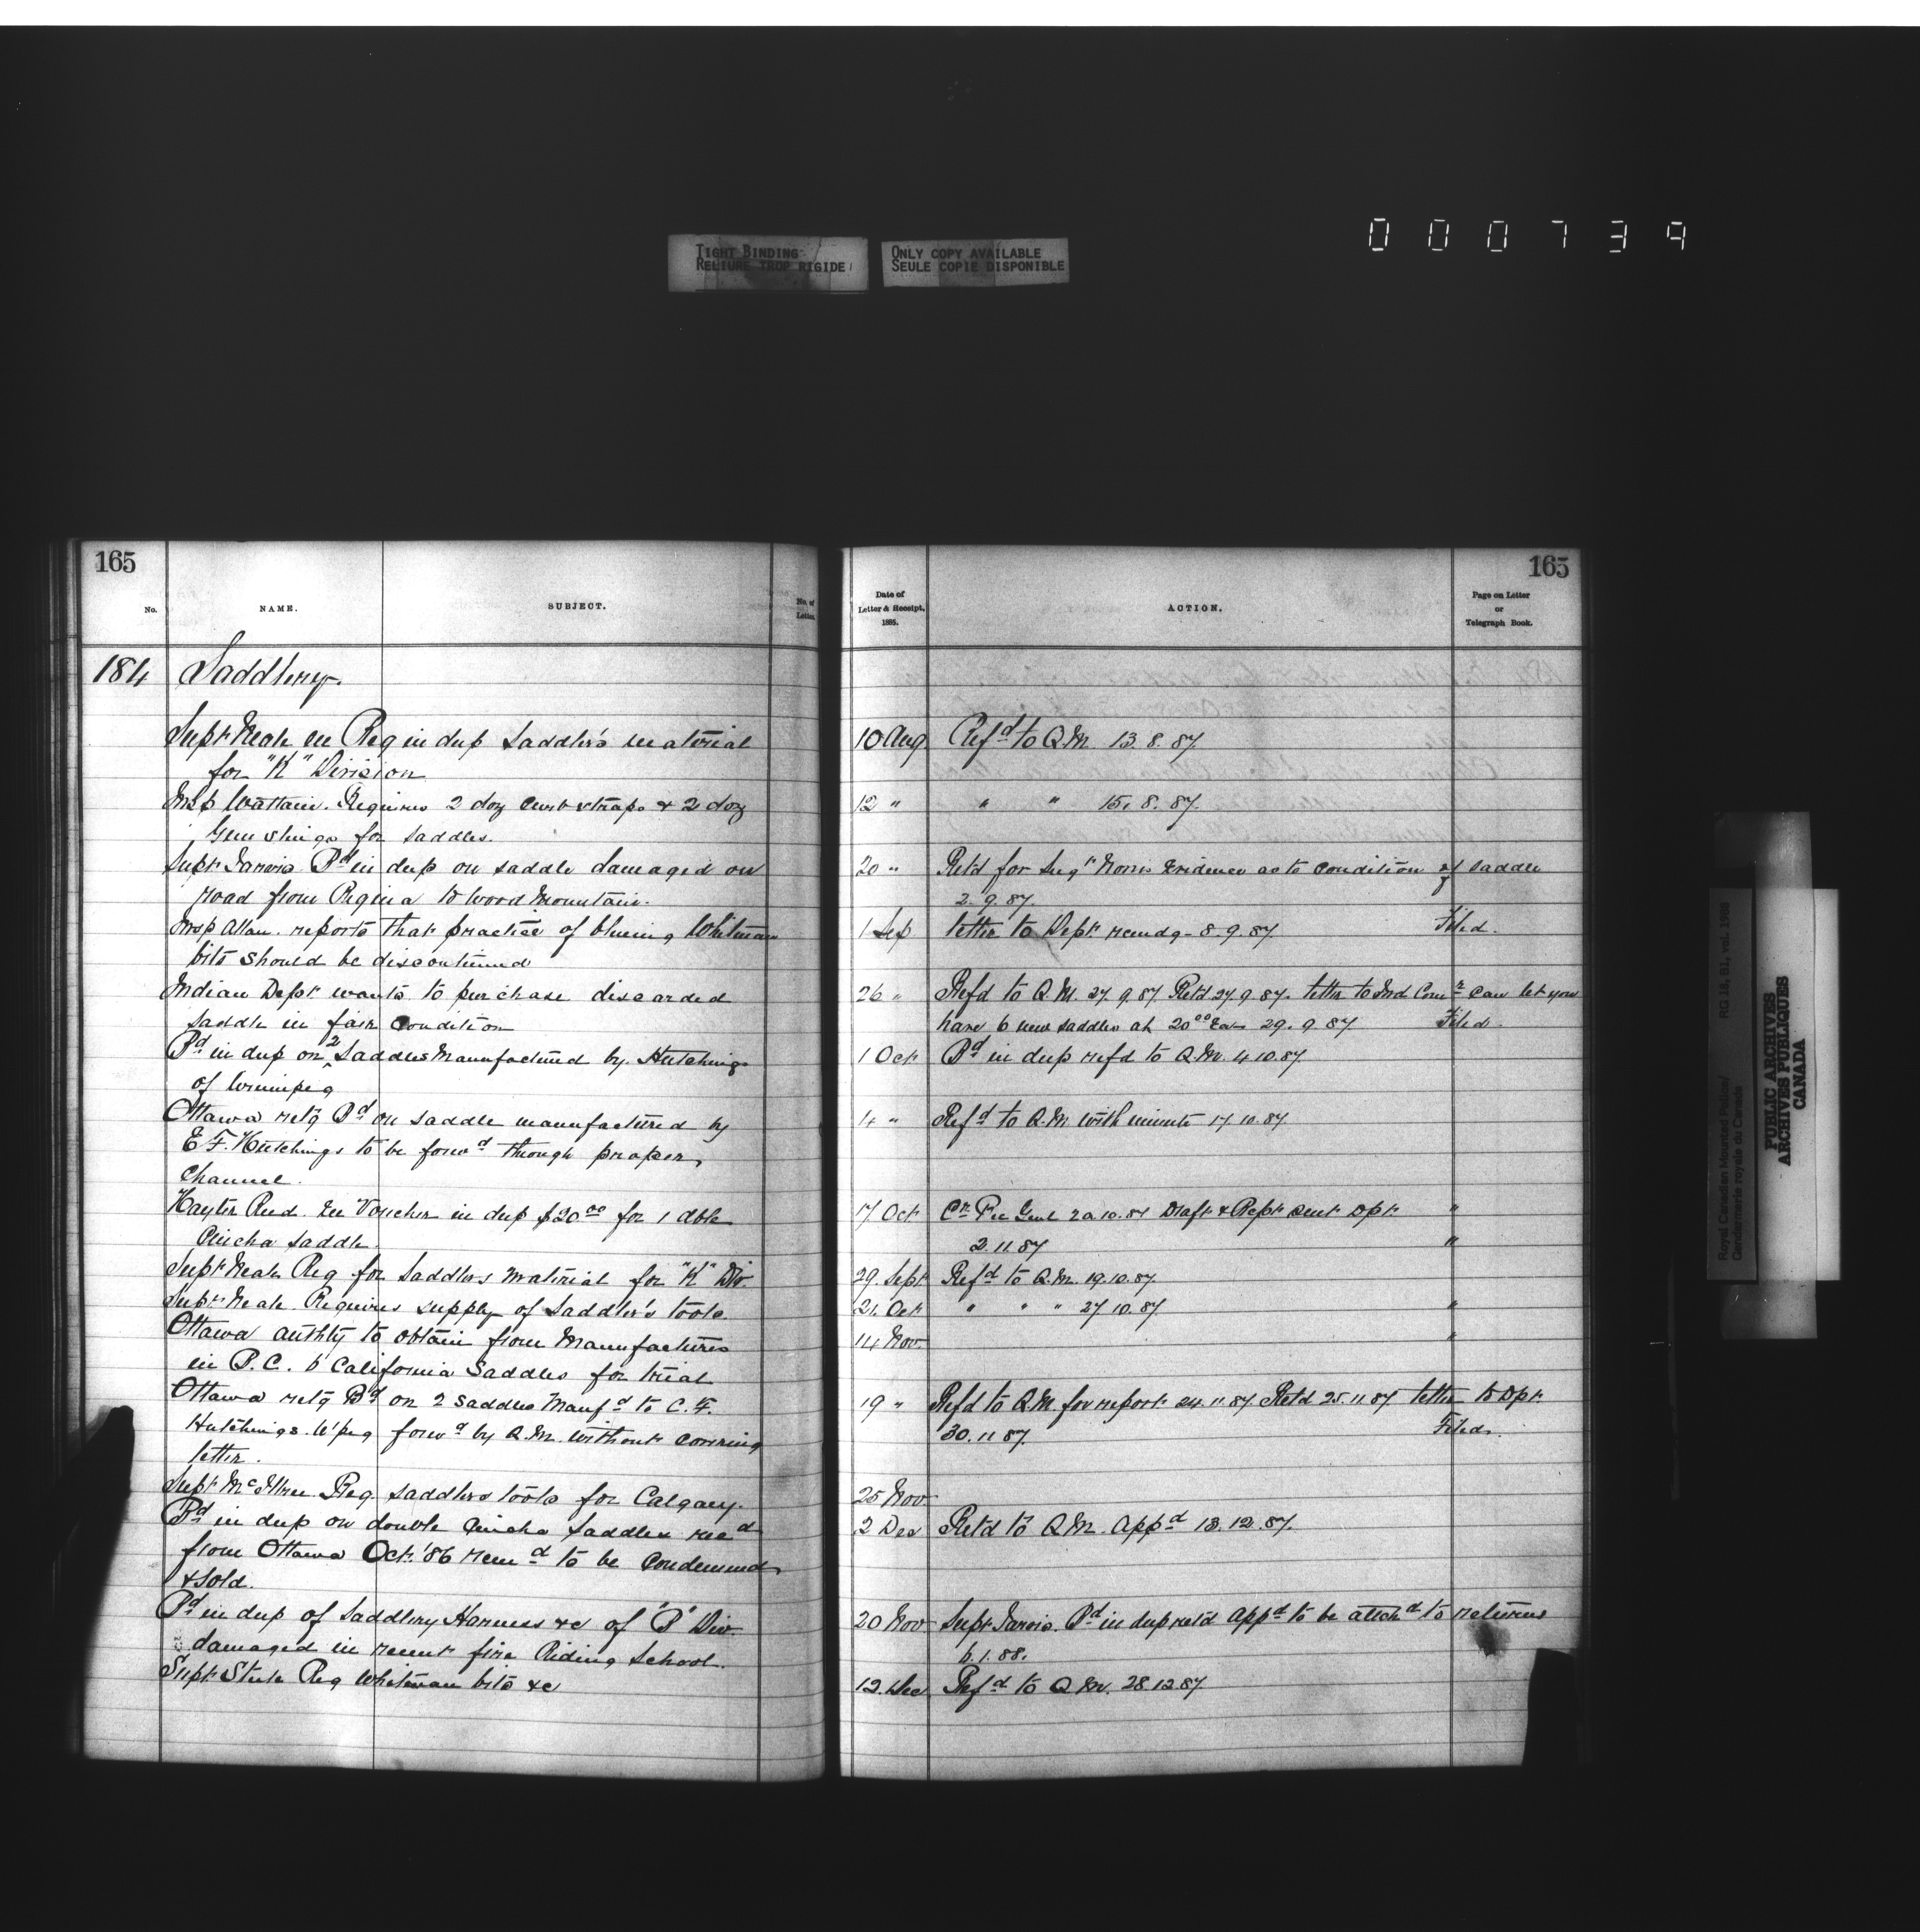 000739
TIGHT BINDING
RELIURE TROP RIGIDE
ONLY COPY AVAILABLE
SEULE COPIE DISPONIBLE
165
No.
NAME.
SUBJECT.
No. of
Letter.
184 Saddlery.
Supt Neale en Req in dup Saddler's material
for "K" Division
Insp Wattam. Requires 2 doz curb straps & 2 doz
Gun slings for saddles.
Supt Jarvis Bd in dup on saddle damaged on
road from Regina to Wood Mountain.
Insp Allan. reports that practice of bluing Whitman
bits should be discontinued
Indian Dept wants to purchase discarded
saddle in fair condition
Bd in dup on 2 Saddles Manufactured by Hutchings
of Winnipeg
Ottawa retg Bd on saddle manufactured by
E F. Hutchings to be forwd through proper
channel.
Hayter Reed. En Voucher in dup $20.00 for 1 dble
Cincha saddle.
Supt Neale Req for Saddlers material for "K" Div.
Supt Neale Requires supply of Saddler's tools.
Ottawa authty to obtain from Manufactures
in B.C. 6 California Saddles for trial
Ottawa retg Bd on 2 saddles Manfd to C. F.
Hutchings. W'peg forwd by Q.M. without covering
letter.
Supt McIllree Req. saddlers tools for Calgary.
Bd in dup on double cincha saddles recd
from Ottawa Oct. '86 recmd to be condemned
& sold.
Bd in dup of Saddlery Harness &c of 'B' Div.
damaged in recent fire Riding School.
Supt Steele Req Whitman bits &c
165
Date of
Letter & Receipt,
1885.
ACTION.
Page on Letter
or
Telegraph Book.
10 Aug Refd to Q.M. 13.8.87
12 " " " 15.8.87.
20 " Retd for Sergt Norris Evidence as to condition of saddle
2.9.87.
1 Sep letter to Dept recmdg - 8.9.87. Filed.
26 " Refd to Q.M. 27.9.87 Retd 27.9.87. letter to Ind Comr can let you
have 6 new saddles at 20.00 Ea - 29.9.87 Filed
1 Oct Bd in dup refd to Q.M. 4.10.87
14 " Refd to Q.M. with minute 17.10.87
17 Oct Cr Rec Genl 20.10.87 Draft & Rept sent Dpt "
2.11.87 "
29 Sept Refd to Q.M. 19.10.87.
21. Oct " " " 27.10.87 "
14 Nov. "
19 " Refd to Q.M. for report 24.11.87 Retd 25.11.87 letter to Dpt.
30.11.87. Filed.
25 Nov.
2 Dec Retd to Q.M. Appd 13.12.87.
20 Nov Supt Jarvis. Bd in dup retd Appd to be attchd to returns
6.1.88.
12. Dec Refd to Q.M. 28.12.87
Royal Canadian Mounted Police/
Gendarmerie royale du Canada
RG 18, B1, vol. 1988
PUBLIC ARCHIVES
ARCHIVES PUBLIQUES
CANADA